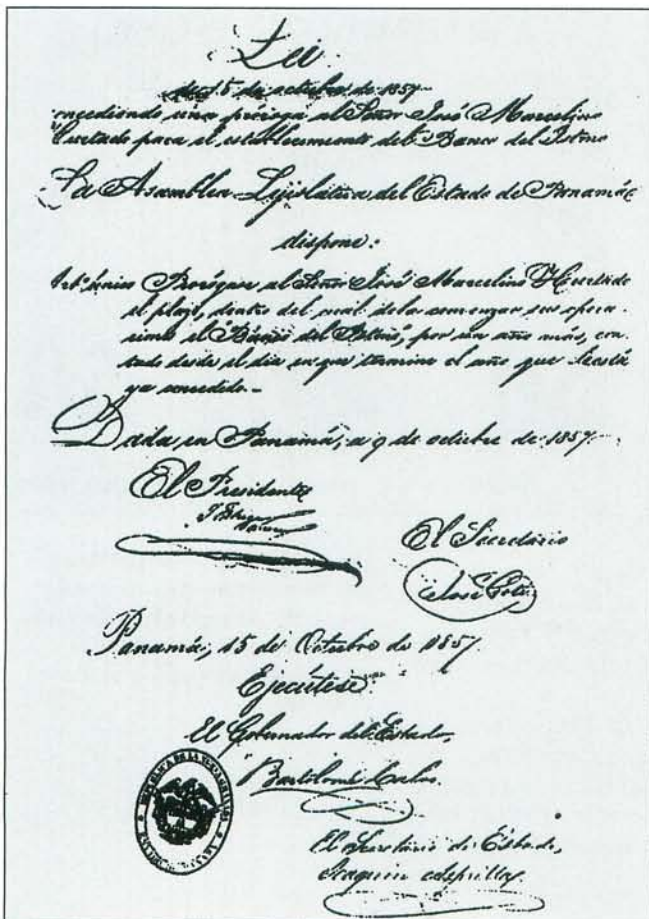 Lei
de 15 de octubre de 1857
oncediendo una próroga al Señor José Marcelino
Hurtado para el establecimiento del Banco del Istmo
La Asamblea Lejislativa del Estado de Panamá
dispone:
Art.º único Prorógase al Señor José Marcelino Hurtado
el plazo, dentro del cual debe comenzar sus opera-
ciones el "Banco del Istmo", por un año más, con-
tado desde el dia en que termine el año que le está
ya concedido.—
Dada en Panamá, a 9 de octubre de 1857.
El Presidente
El Secretario
José
Panamá, 15 de Octubre de 1857.
Ejecútese.
El Gobernador del Estado,
Bartolomé Calvo.
REPUBLICA DE LA NUEVA GRANADA
El Secretario de Estado,